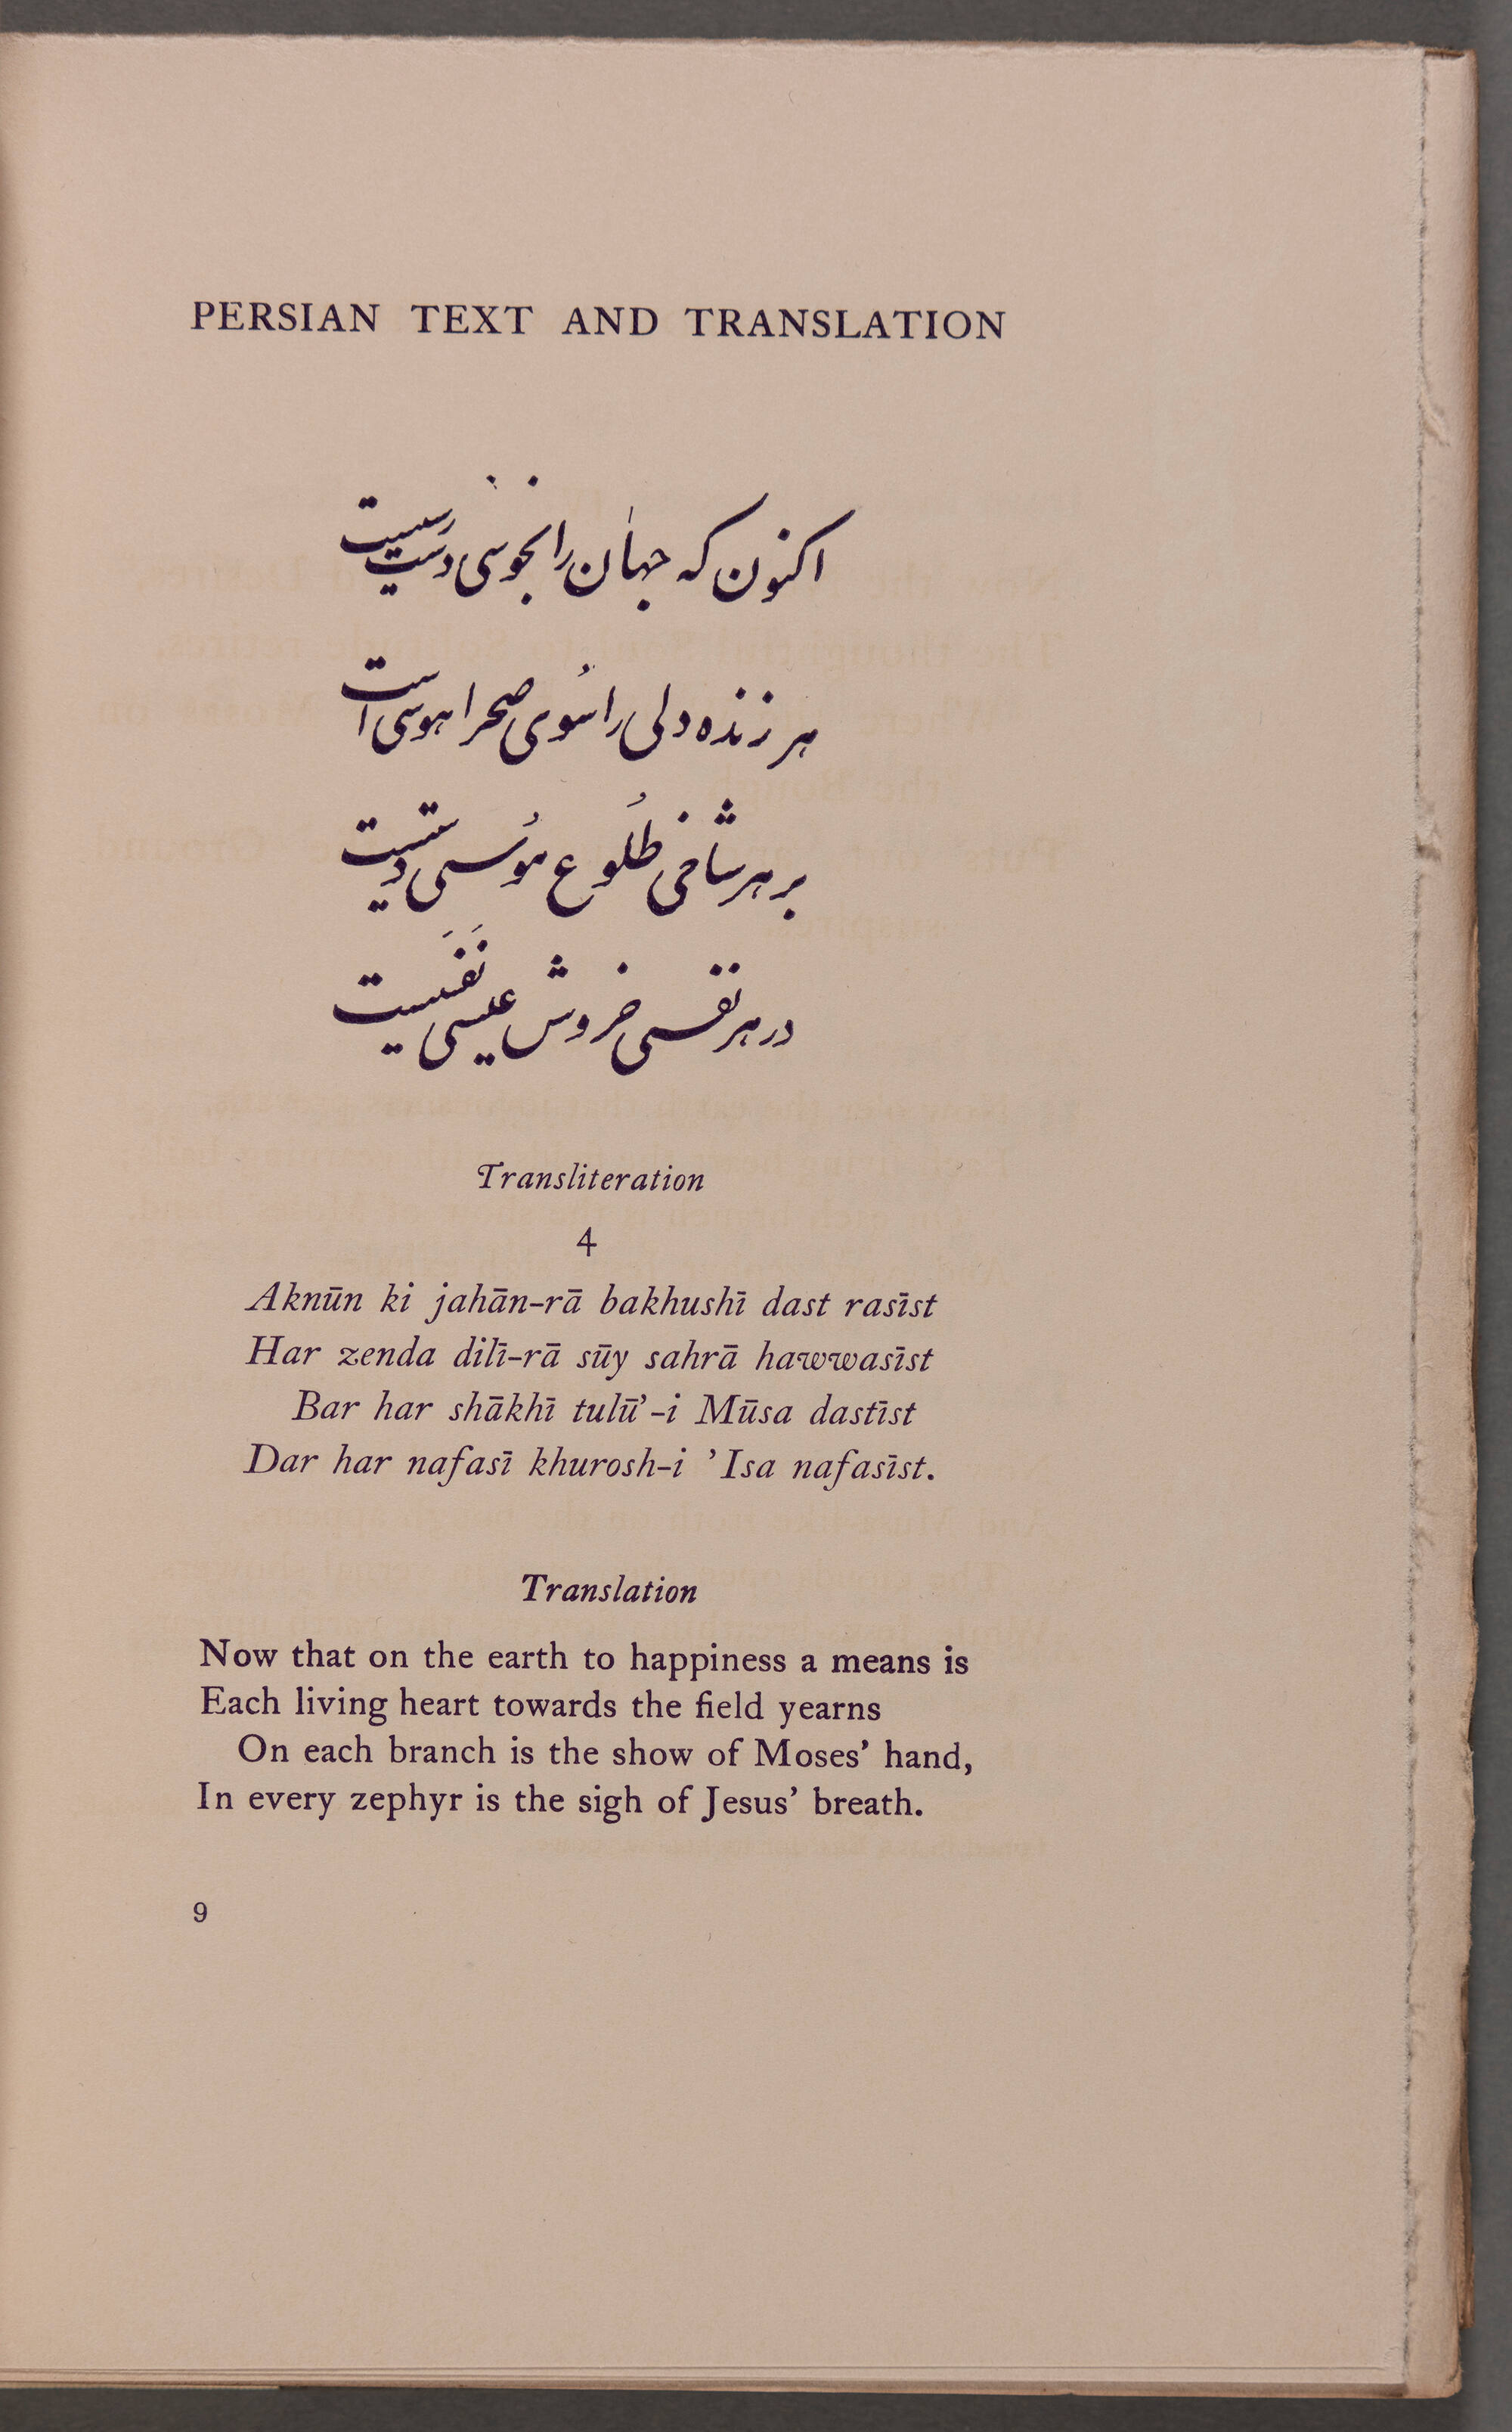 PERSIAN TEXT AND TRANSLATION
اکنون که جهان را بخوشی دست رسیست
هر زنده دلی را سُوی صحرا هوسی است
بر هر شاخی طُلوع مُوسی دستیست
در هر نفسی خروش عیسی نَفَسیست
Transliteration
4
Aknūn ki jahān-rā bakhushī dast rasīst
Har zenda dilī-rā sūy sahrā hawwasīst
Bar har shākhī tulū’-i Mūsa dastīst
Dar har nafasī khurosh-i ’Isa nafasīst.
Translation
Now that on the earth to happiness a means is
Each living heart towards the field yearns
On each branch is the show of Moses’ hand,
In every zephyr is the sigh of Jesus’ breath.
9